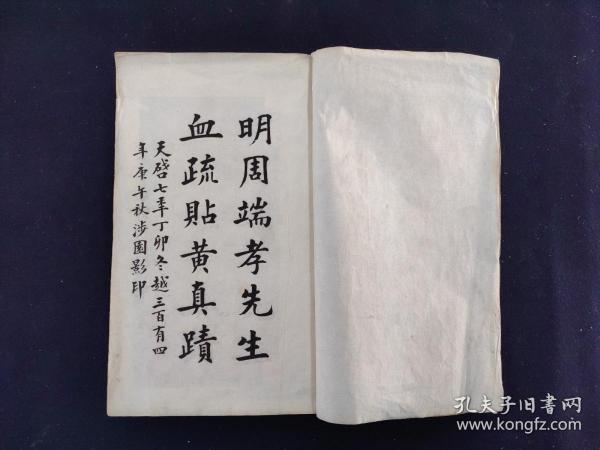 明周端孝先生
血疏貼黄真蹟
天啓七年丁卯冬越三百有四
年庚午秋涉園影印
孔夫子旧書网
www.kongfz.com